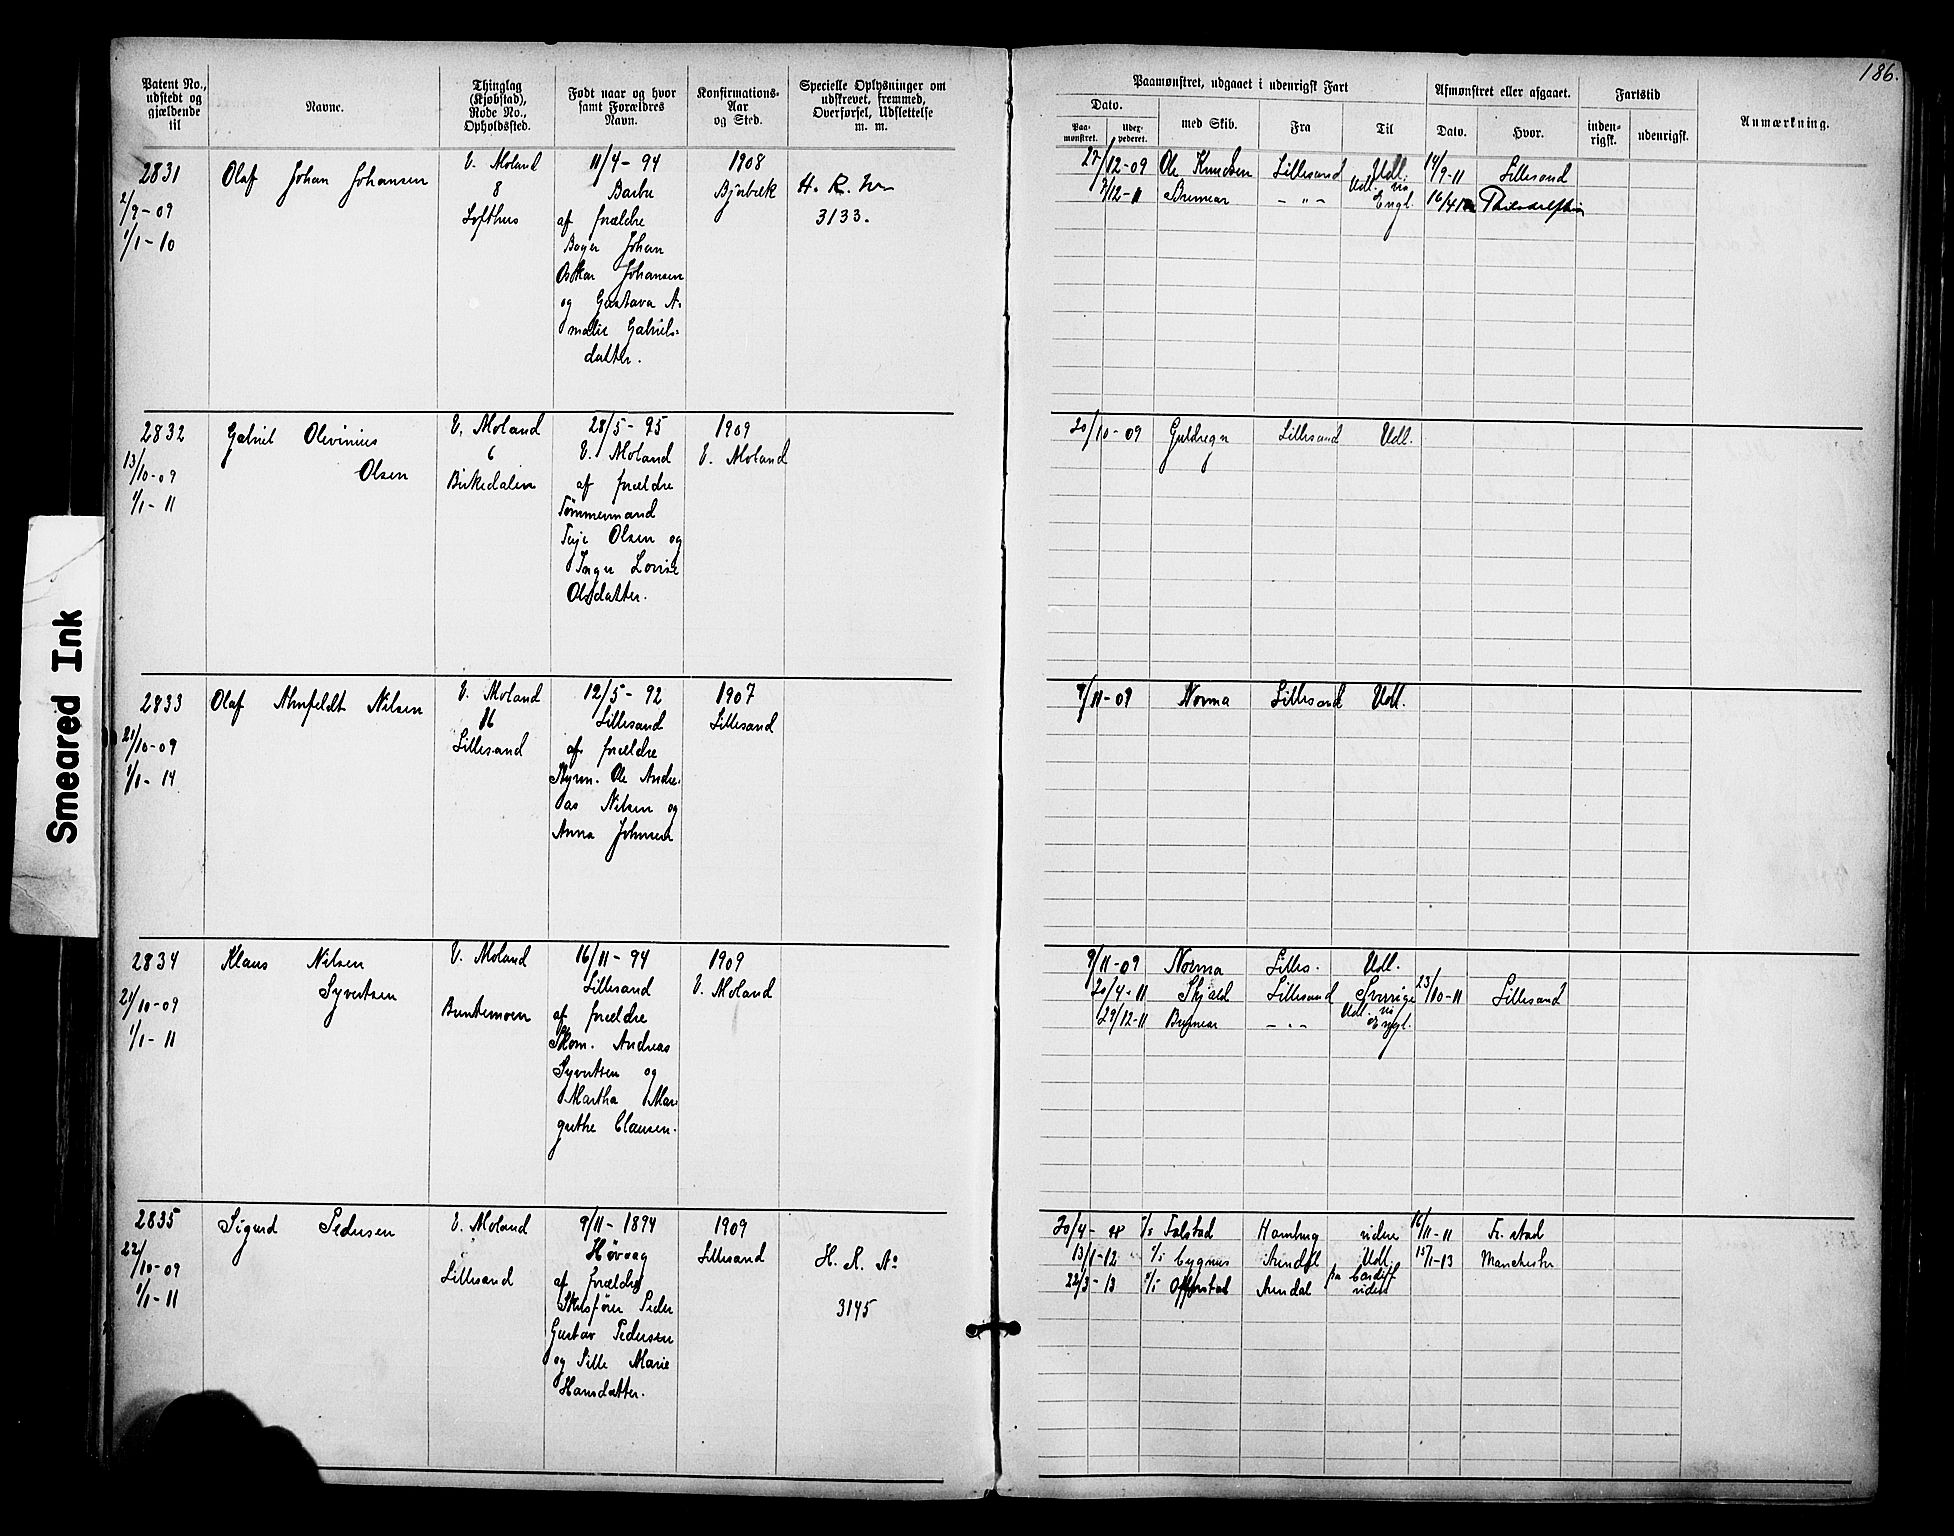 186.
Patent No., udstedt og gjældende til
Navne.
Thinglag (Kjøbstad), Rode No., Opholdssted.
Født naar og hvor samt Forældres Navn.
Konfirmations-Aar og Sted.
Specielle Oplysninger om udskrevet, fremmed, Overførsel, Udslettelse m. m.
Paamønstret, udgaaet i udenrigsk Fart
Dato.
Paa-mønstret.
Udex-pederet.
med Skib.
Fra
Til
Afmønstret eller afgaaet.
Dato.
Hvor.
Fartstid
inden-rigsk.
udenrigsk.
Anmærkning.
2831
2/9-09
1/1-10
Olaf Johan Johansen
V. Moland
8
Lofthus
11/4-94
Barbu
af forældre
Bager Johan
Oskar Johansen
og Gustava A-
malie Gabriels-
datter.
1908
Bjorbæk
H. R. No
3133.
27/12-09 Ole Knudsen Lillesand Udl. 14/9-11 Lillesand
7/12-11 Bremear - " - Udl. via Engl. 16/4 Philadelphia
2832
13/10-09
1/1-11
Gabriel Olevinius
Olsen
V. Moland
6
Birkedalen
28/5-95
V. Moland
af forældre
Tømmermand
Terje Olsen og
Inger Lovise
Olsdatter.
1909
V. Moland
20/10-09 Guldregn Lillesand Udl.
2833
21/10-09
1/1-14
Olaf Almfeldt Nilsen
V. Moland
16
Lillesand
12/5-92
Lillesand
af forældre
Styrm. Ole Andre-
as Nilsen og
Anna Johnsen
1907
Lillesand
9/11-09 Norma Lillesand Udl.
2834
21/10-09
1/1-11
Klaus Nilsen
Syvertsen
V. Moland
Buntemoen
16/11-94
Lillesand
af forældre
Skom. Andreas
Syvertsen og
Martha Mar-
grethe Clausen.
1909
V. Moland
9/11-09 Norma Lilles. Udl.
20/4-11 Skjald Lillesand Sverige 23/10-11 Lillesand
29/12-11 Bremear - " - Udl. via Engl.
2835
22/10-09
1/1-11
Sigurd Pedersen
V. Moland
Lillesand
9/11-1894
Høvaag
af forældre
Skibsfører Peder
Gustav Pedersen
og Sille Marie
Hansdatter.
1909
Lillesand
H. R. No
3145
20/4- Falstad Hamburg videre 16/11-11 Fr. stad
13/1-12 Cygnus Arendal Udl. 15/1-13 Manchester
22/3-13 Arendal pa Cardiff videre
Smeared Ink